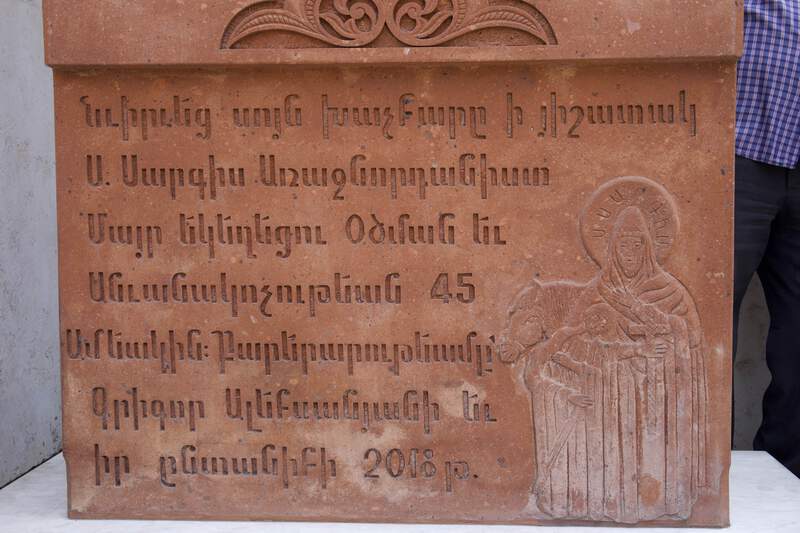 Նւիրւեց սոյն խաչքարը ի յիշատակ
Ս. Սարգիս Առաջնորդանիստ
Մայր եկեղեցու Օծման եւ
Անւանակոչութեան 45
Ամեակին: Բարերարութեամբ՝
Գրիգոր Ալեքսանյանի եւ
իր ընտանիքի 2018 թ.